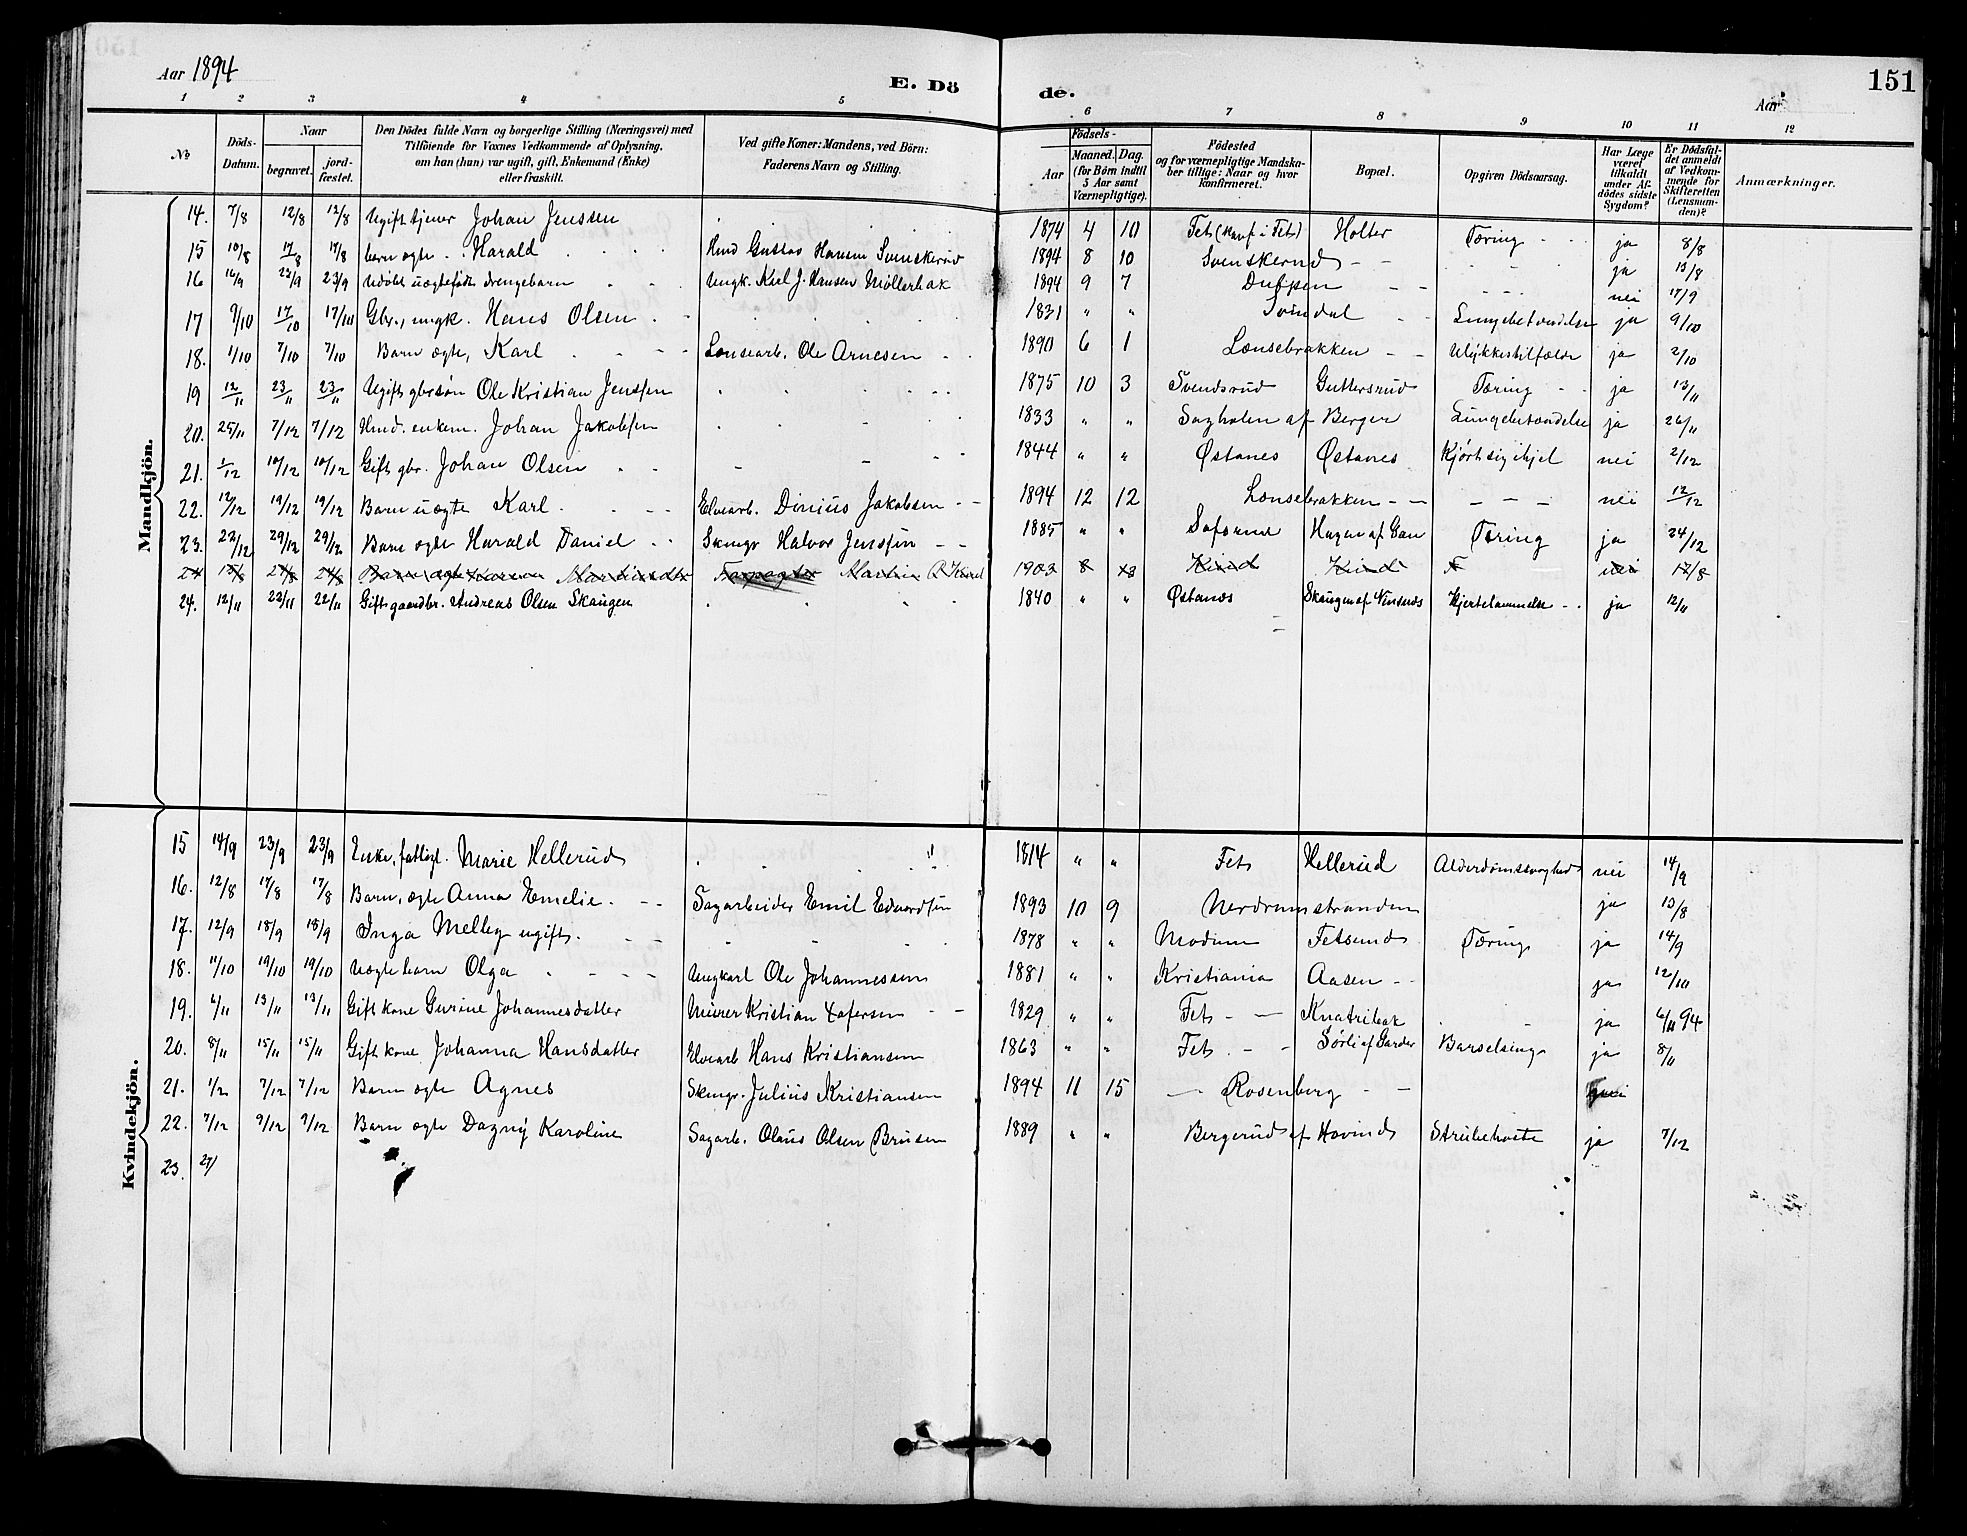 Aar 1894 E. Dö de. Aar 151
1 2 3 4 5 6 7 8 9 10 11 12
No Döds-Datum. Naar begravet. jord-fæstet. Den Dödes fulde Navn og borgerlige Stilling (Næringsvei) med Tilföiende for Voxnes Vedkommende af Oplysning, om han (hun) var ugift, gift, Enkemand (Enke) eller fraskilt. Ved gifte Koner: Mandens, ved Börn: Faderens Navn og Stilling. Födsels- Aar Maaned. Dag. (for Börn indtil 5 Aar samt Værnepligtige). Födested og for værnepligtige Mandskaber tillige: Naar og hvor konfirmeret. Bopæl. Opgiven Dödsaarsag. Har Læge været tilkaldt under Afdödes sidste Sygdom? Er Dödsfaldet anmeldt af Vedkommende for Skifteretten (Lensmanden)? Anmærkninger.
Mandkjön.
14. 7/8 12/8 12/8 Ugift tjener Johan Jenssen 1874 4 10 Fet (konf i Fet) Holter Tæring ja 8/8
15 10/8 17/8 17/8 barn ægte Harald Hmd Gustav Hansen Svenskerud 1894 8 10 Svenskerud ja 13/8
16 16/9 23/9 23/9 Udöbt uægtefödt drengebarn Ungk. Karl J. Hansen Möllerbak 1894 9 7 nei 17/9
17 9/10 17/10 17/10 Gbr., ungk. Hans Olsen 1831 " " Svindal Lungebetændelse ja 9/10
18. 1/10 7/10 7/10 Barn ægte, Karl Lænsearb. Ole Arnesen 1890 6 1 Lænsebrakken Ulykkestilfælde ja 2/10
19 12/11 23/11 23/11 Ugift gbrsøn Ole Kristian Jenssen 1875 10 3 Svendsrud Guttersrud Tæring ja 13/11
20. 25/11 7/12 7/12 Hmd. enkem. Johan Jakobsen 1833 " " Sagholen af Berger Lungebetændelse ja 26/11
21. 1/12 10/12 10/12 Gift gbr. Johan Olsen 1844 " " Østanes Østanes Kjørt sig ihjel nei 2/12
22. 12/12 19/12 19/12 Barn uægte Karl Elvearb. Dinius Jakobsen 1894 12 12 Lænsebrakken nei 12/12
23. 22/12 29/12 29/12 Barn ægte Harald Daniel Skmgr Halvor Jenssen 1885 " " Hagen af Gan Tæring ja 24/12
24 24/8 24/8 Barn ægte Karen 1903 8 Kind Kind F nei 12/8
24. 12/11 22/11 22/11 Gift gaardbr. Andreas Olsen Skaugen 1840 " " Østanes Skaugen af Hjertelammelse ja 12/11
Kvindekjön.
15 14/9 23/9 23/9 Enke, fattigl. Marie Hellerud " 1814 " " Fet Hellerud Alderdomssvaghed nei 14/9
16. 12/8 17/8 17/8 Barn, ægte Anna Emelie Sagarbeider Emil Edvardsen 1893 10 9 Nerdrumstranden ja 13/8
17. 12/9 18/9 18/9 Inga Melleg ugift. 1878 " " Modum Fetsund Tæring ja 14/9
18. 11/10 19/10 19/10 Uægte barn Olga Ungkarl Ole Johannessen 1881 " " Kristiania Aasen ja 12/10
19. 6/11 13/11 13/11 Gift kone Gurine Johannesdatter Murer Kristian 1829 " " Fet Knatribak ja 6/11 94
20. 8/11 15/11 15/11 Gift kone Johanna Hansdatter Elvearb Hans Kristiansen 1863 " " Fet Sørli af Garder Barselseng ja 8/11
21. 1/12 7/12 7/12 Barn ægte Agnes Skmgr. Julius Kristiansen 1894 11 15 Rosenberg nei
22. 7/12 9/12 9/12 Barn ægte Dagny Karoline Sagarb. Olaus Olsen Brusen 1889 " " Bergerud af Hovind Strubehoste ja 7/12
23. 27/